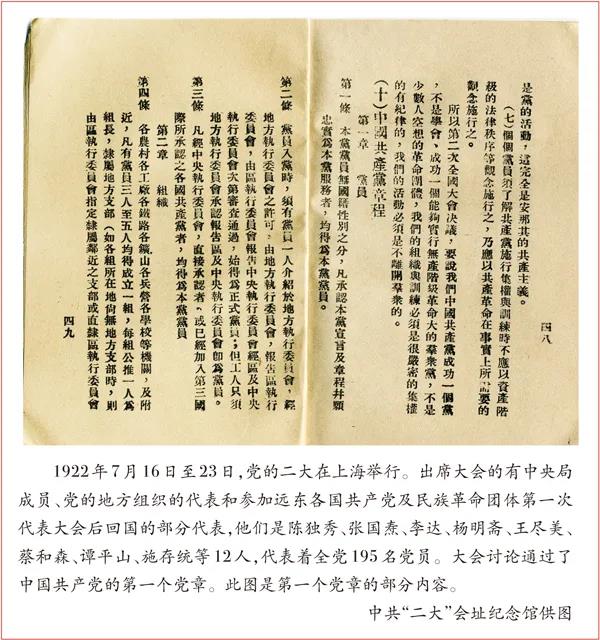 四八
是黨的活動，這完全是安那其的共產主義。
（七）個個黨員須了解共產黨施行集權與訓練時不應以資產階
級的法律秩序等觀念施行之，乃應以共產革命在事實上所需要的
觀念施行之。
所以第二次全國大會決議，要說我們中國共產黨成功一個黨
，不是學會，成功一個能夠實行無產階級革命大的羣衆黨，不是
少數人空想的革命團體，我們的組織與訓練必須是很嚴密的集權
的有紀律的，我們的活動必須是不離開羣衆的。
（十）中國共產黨章程
第一章 黨員
第一條 本黨黨員無國籍性別之分，凡承認本黨宣言及章程幷願
忠實爲本黨服務者，均得爲本黨黨員。
第二條 黨員入黨時，須有黨員一人介紹於地方執行委員會，經
地方執行委員會之許可，由地方執行委員會，報告區執行
委員會，由區執行委員會報告中央執行委員會經區及中央
執行委員會次第審查通過，始得爲正式黨員；但工人只須
地方執行委員會承認報告區及中央執行委員會卽爲黨員。
第三條 凡經中央執行委員會，直接承認者，或已經加入第三國
際所承認之各國共產黨者，均得爲本黨黨員
第二章 組織
第四條 各農村各工廠各鐵路各鑛山各兵營各學校等機關，及附
近，凡有黨員三人至五人均得成立一組，每組公推一人爲
組長，隸屬地方支部（如各組所在地尙無地方支部時，則
由區執行委員會指定隸屬鄰近之支部或直隸區執行委員會
四九
1922年7月16日至23日,党的二大在上海举行。出席大会的有中央局
成员、党的地方组织的代表和参加远东各国共产党及民族革命团体第一次
代表大会后回国的部分代表,他们是陈独秀、张国焘、李达、杨明斋、王尽美、
蔡和森、谭平山、施存统等12人,代表着全党195名党员。大会讨论通过了
中国共产党的第一个党章。此图是第一个党章的部分内容。
中共“二大”会址纪念馆供图